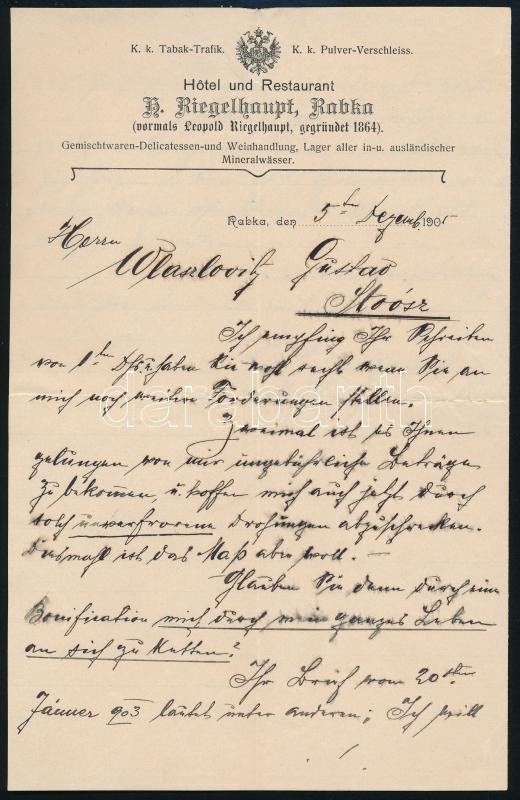 K. k. Tabak-Trafik. K. k. Pulver-Verschleiss.
Hôtel und Restaurant
H. Riegelhaupt, Rabka
(vormals Leopold Riegelhaupt, gegründet 1864).
Gemischtwaren-Delicatessen-und Weinhandlung, Lager aller in-u. ausländischer
Mineralwässer.
Rabka, den 5ten Dezemb. 1905
Herrn
Wlaszlovitz Gustav
Stoósz
Ich empfing Ihr Schreiben
von 1ten Dfs u. haben Sie wohl recht wenn Sie an
mich noch weitere Forderungen stellen.
darabanth
Zweimal ist es Ihnen
gelungen von mir ungebührliche Beträge
zu bekommen, u. hoffen mich auch jetzt durch
solch unverfrorene Drohungen abzuschrecken.
Diesmahl ist das Maß aber voll. —
Glauben Sie denn durch eine
Bonification mich durch mein ganzes Leben
an sich zu ketten?
Ihr Brief vom 20sten
Jänner 903 lautet unter anderen; Ich will